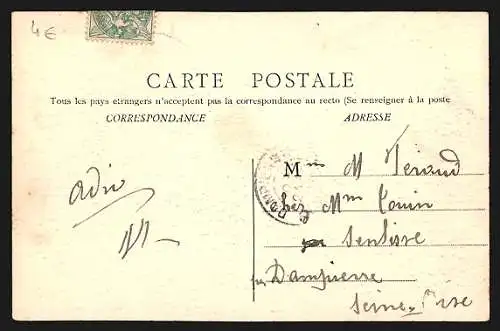 4€
CARTE POSTALE
Tous les pays etrangers n'acceptent pas la correspondance au recto (Se renseigner à la poste
CORRESPONDANCE
ADRESSE
Mme M
chez Mme
adio
par Dampierre
Seine & Oise